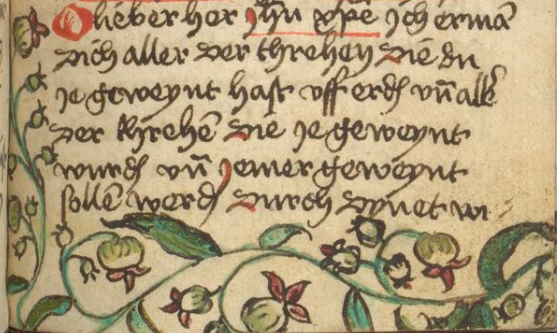 O lieber her Jhũ xpē Jch ermã
dich aller der threhen die du
Je geweynt hast vff erdẽ vñ alle
der threhẽ die Je geweynt
wurdẽ vñ Jemer geweynt
sollẽ werdẽ durch dynet wi